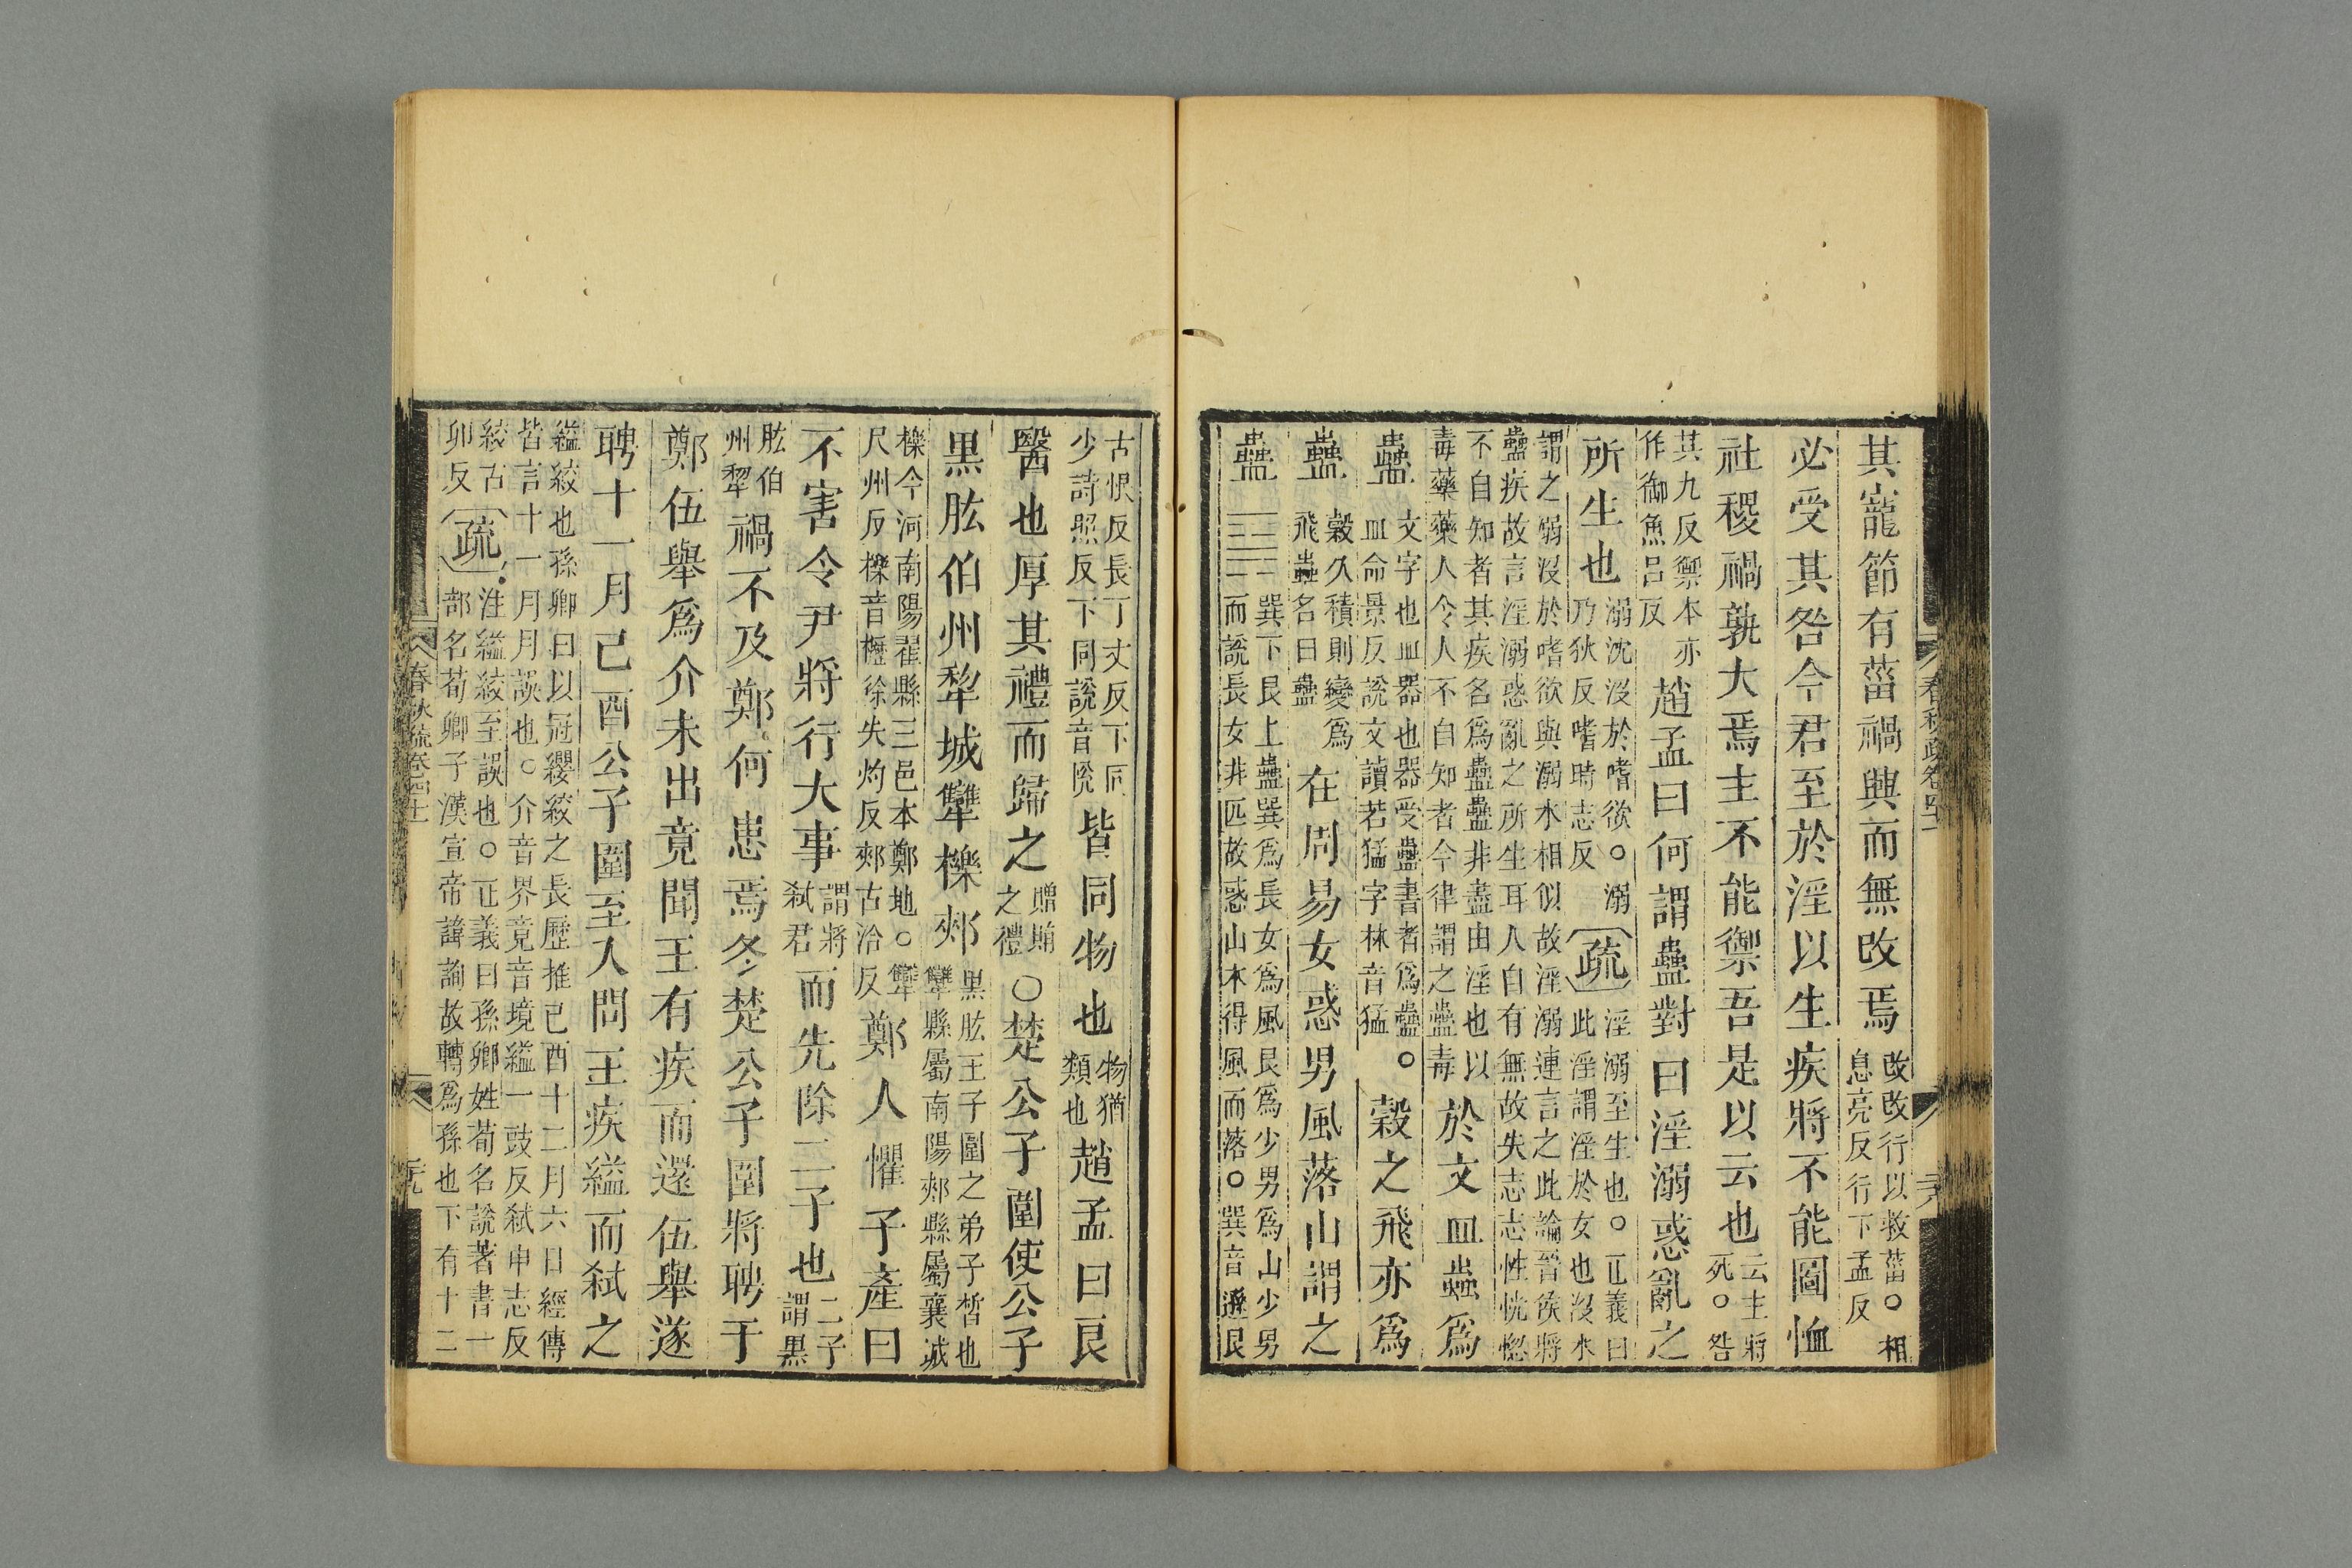 其寵節有菑禍興而無改焉改改行以救菑○相
息亮反行下孟反
必受其咎今君至於淫以生疾將不能圖恤
社稷禍孰大焉主不能禦吾是以云也云主將
死○咎
其九反禦本亦
作御魚呂反趙孟曰何謂蠱對曰淫溺惑亂之
所生也溺沈沒於嗜欲○溺
乃狄反嗜時志反疏淫溺至生也○正義曰
此淫謂淫於女也沒水
謂之溺沒於嗜欲與溺水相似故淫溺連言之此論晉侯將
蠱疾故言淫溺惑亂之所生耳人自有無故失志志性恍惚
不自知者其疾名爲蠱蠱非盡由淫也以
毒藥藥人令人不自知者今律謂之蠱毒於文皿蟲爲
蠱文字也皿器也器受蠱書者爲蠱○
皿命景反說文讀若猛字林音猛穀之飛亦爲
蠱穀久積則變爲
飛蟲名曰蠱在周易女惑男風落山謂之
蠱☶☴巽下艮上蠱巽爲長女爲風艮爲少男爲山少男
而說長女非匹故惑山木得風而落○巽音遜艮
古恨反長丁丈反下同
少詩照反下同說音悅皆同物也物猶
類也趙孟曰良
醫也厚其禮而歸之贈賄
之禮○楚公子圍使公子
黑肱伯州犁城犨櫟郟黑肱王子圍之弟子晳也
犨縣屬南陽郟縣屬襄城
櫟今河南陽翟縣三邑本鄭地○犨
尺州反櫟音櫪徐失灼反郟古洽反鄭人懼子產曰
不害令尹將行大事謂將
弒君而先除二子也二子
謂黑
肱伯
州犁禍不及鄭何患焉冬楚公子圍將聘于
鄭伍舉爲介未出竟聞王有疾而還伍舉遂
聘十一月己酉公子圍至入問王疾縊而弒之
縊絞也孫卿曰以冠纓絞之長歷推己酉十二月六日經傳
皆言十一月月誤也○介音界竟音境縊一豉反弒申志反
絞古
卯反疏注縊絞至誤也○正義曰孫卿姓荀名況著書一
部名荀卿子漢宣帝諱詢故轉爲孫也下有十二
春秋疏卷四十一
春秋疏卷四十一